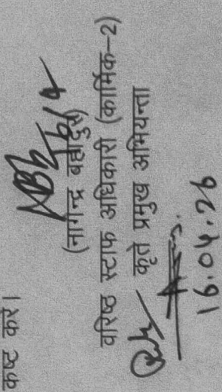 कष्ट करें।
(नागेन्द्र बहादुर)
वरिष्ठ स्टाफ अधिकारी (कार्मिक–2)
कृते प्रमुख अभियन्ता
16.04.26